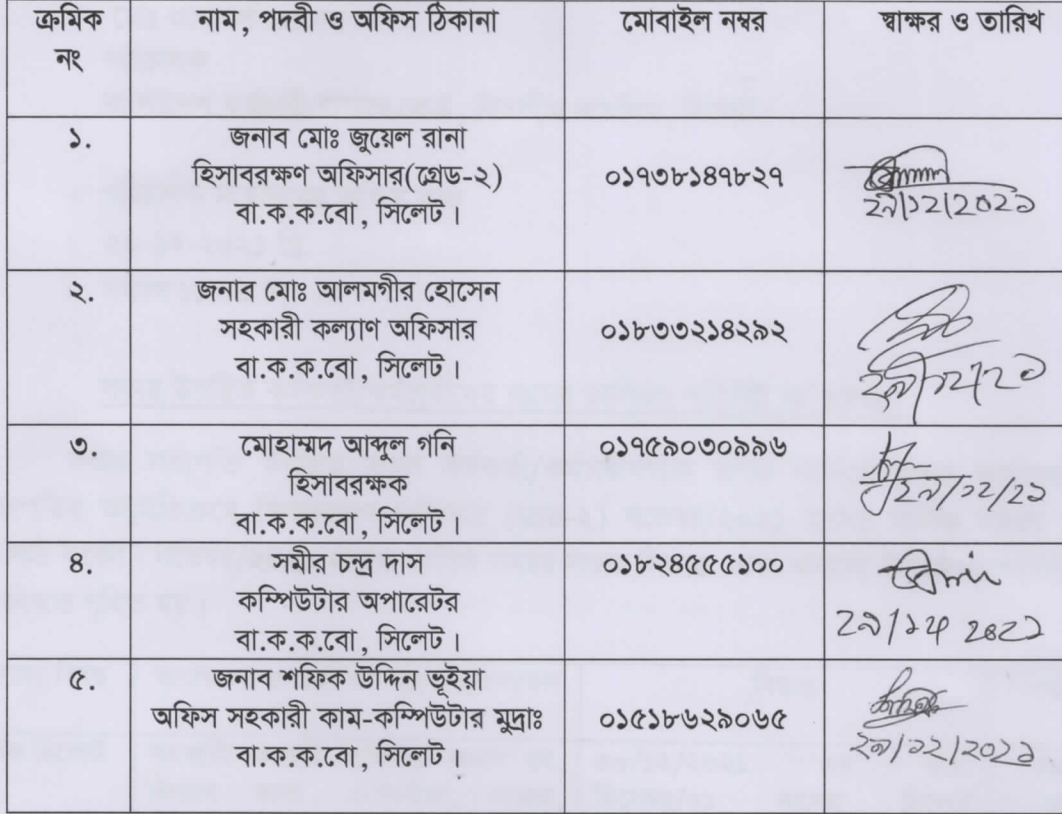 ক্রমিক নং
নাম, পদবী ও অফিস ঠিকানা
মোবাইল নম্বর
স্বাক্ষর ও তারিখ
১.
জনাব মোঃ জুয়েল রানা
হিসাবরক্ষণ অফিসার(গ্রেড-২)
বা.ক.ক.বো, সিলেট।
০১৭৩৮১৪৭৮২৭
২৯/১২/২০২১
২.
জনাব মোঃ আলমগীর হোসেন
সহকারী কল্যাণ অফিসার
বা.ক.ক.বো, সিলেট।
০১৮৩৩২১৪২৯২
২৯/১২/২১
৩.
মোহাম্মদ আব্দুল গনি
হিসাবরক্ষক
বা.ক.ক.বো, সিলেট।
০১৭৫৯০৩০৯৯৬
২৯/১২/২১
৪.
সমীর চন্দ্র দাস
কম্পিউটার অপারেটর
বা.ক.ক.বো, সিলেট।
০১৮২৪৫৫৫১০০
৫.
জনাব শফিক উদ্দিন ভূইয়া
অফিস সহকারী কাম-কম্পিউটার মুদ্রাঃ
বা.ক.ক.বো, সিলেট।
০১৫১৮৬২৯০৬৫
২৯/১২/২০২১